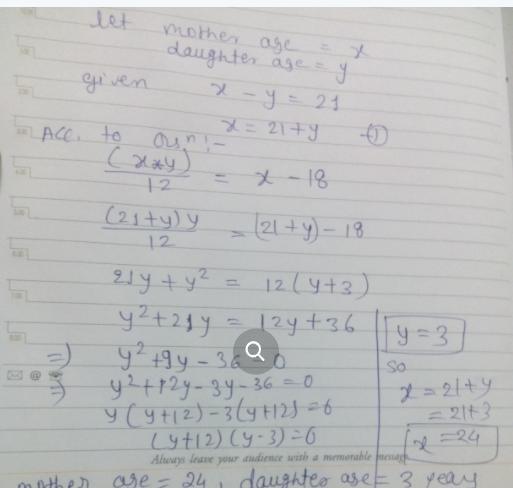 let mother age = x
daughter age = y
given x - y = 21
x = 21+y - ①
Acc. to Qsn:-
(x*y)/12 = x - 18
(21+y)y/12 = (21+y) - 18
21y + y² = 12(y+3)
y² + 21y = 12y + 36
=) y² + 9y - 36 = 0
=) y² + 12y - 3y - 36 = 0
y(y+12) - 3(y+12) = 0
(y+12)(y-3) = 0
y = 3
so
x = 21+y
= 21+3
x = 24
Always leave your audience with a memorable message
mother age = 24, daughter age = 3 years